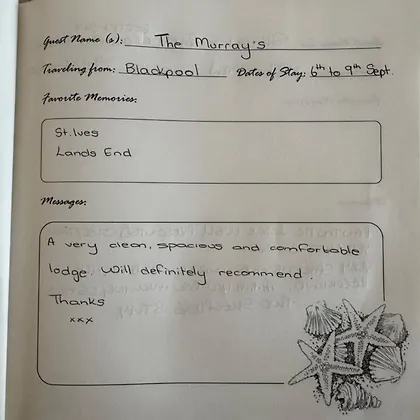 Guest Name (s): The Murray's
Traveling from: Blackpool Dates of Stay: 6th to 9th Sept.
Favorite Memories:
St.Ives
Lands End
Messages:
A very clean, spacious and comfortable
lodge. Will definitely recommend.
Thanks
xxx